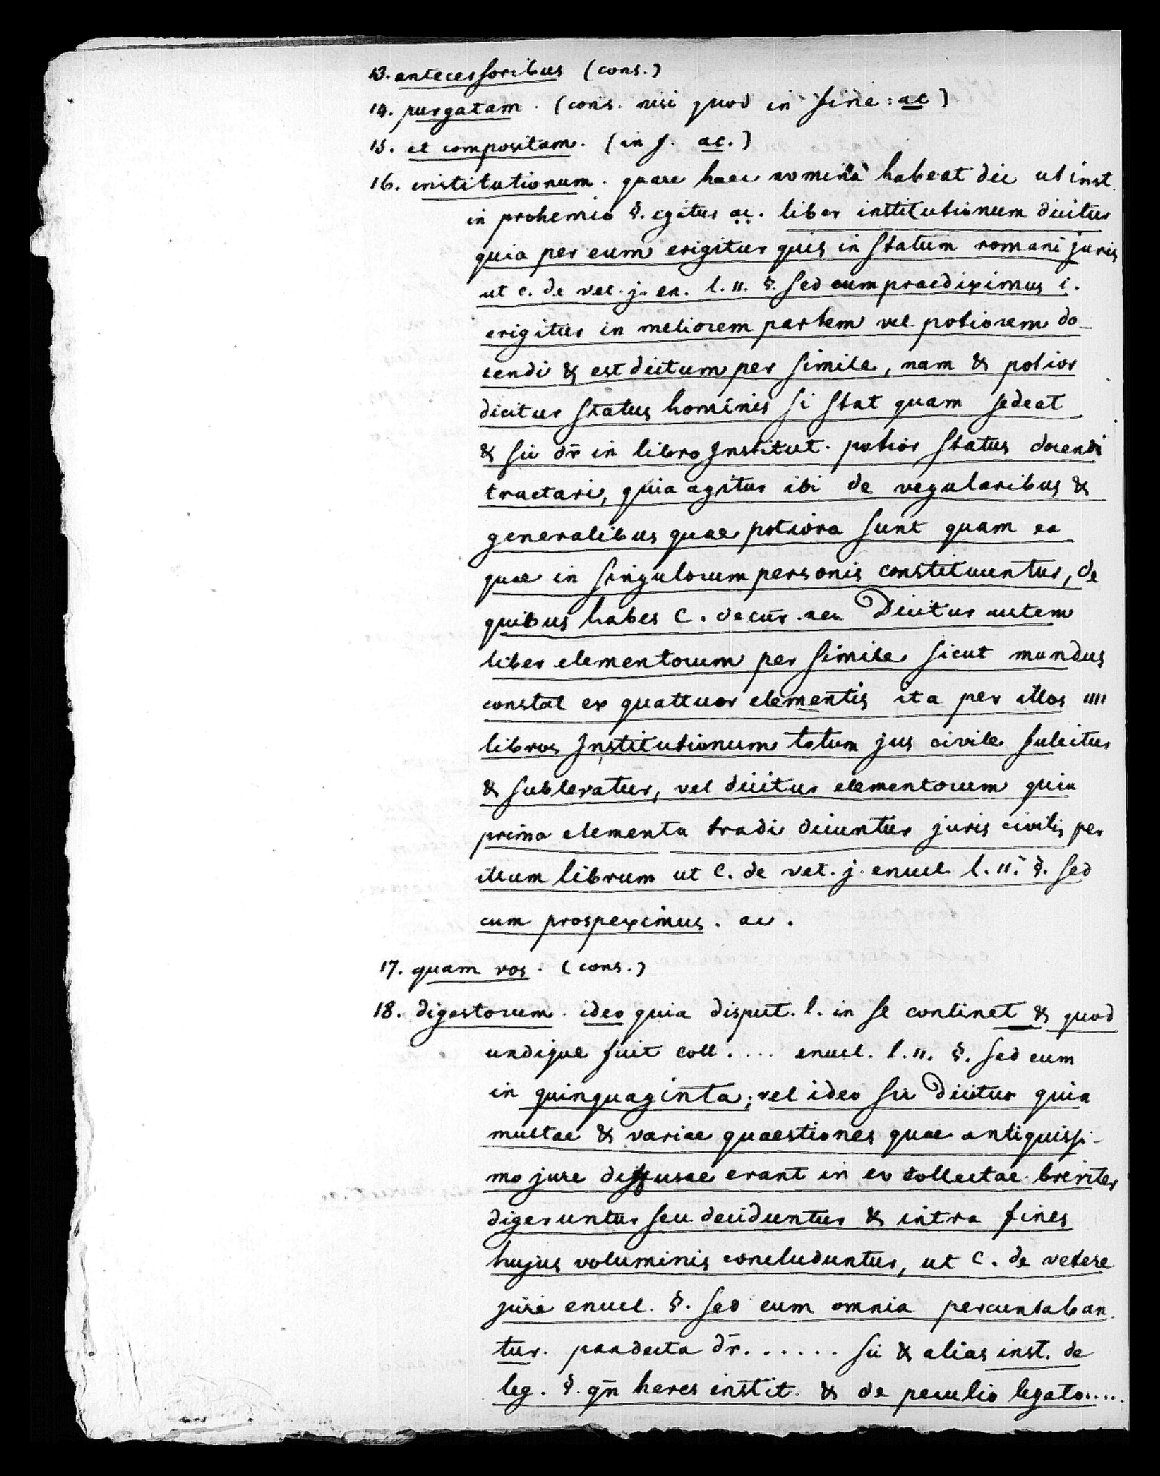 13. antecessoribus (cons.)
14. purgatam. (cons. nisi quod in fine: ac)
15. et compositam. (in f. ac.)
16. institutionum. quare haec nomina habeat dic ut inst.
in prohemio §. igitur ac. liber institutionum dicitur
quia per eum erigitur quis in statum romani juris
ut c. de vet. j. en. l. II. §. sed cum praediximus i.
erigitur in meliorem partem vel potiorem do-
cendi & est dictum per simile, nam & potior
dicitur status hominis si stat quam sedeat
& sic dr in libro Institut. potior status docendi
tractari, quia agitur ibi de regularibus &
generalibus quae potiora sunt quam ea
quae in singulorum personis constituuntur, de
quibus habes C. Dicitur autem
liber elementorum per simile sicut mundus
constat ex quattuor elementis ita per illos IIII
libros Institutionum totum jus civile fulcitur
& sublevatur, vel dicitur elementorum quia
prima elementa tradi dicuntur juris civilis per
illum librum ut C. de vet. j. enucl. l. II. §. sed
cum prospeximus. ac.
17. quam vos. (cons.)
18. digestorum. ideo quia disput. l. in se continet & quod
undique fuit coll.... enucl. l. II. §. sed cum
in quinquaginta; vel ideo sic Dicitur quia
multae & variae quaestiones quae antiquissi-
mo jure diffusae erant in eo collectae breviter
digeruntur seu deciduntur & intra fines
hujus voluminis concluduntur, ut C. de vetere
jure enucl. §. sed cum omnia percunctaban
tur. pandecta dr. ...... sic & alias inst. de
leg. §. qn heres instit. & de peculio legato.....